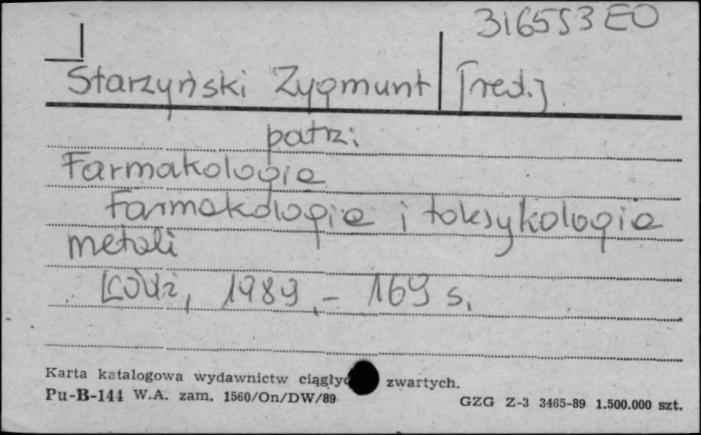 316553 EO
Starzyński Zygmunt [red.]
patrz:
Farmakologia
Farmakologia i toksykologia
metali
Łódź, 1989.- 169 s.
Karta katalogowa wydawnictw zwartych.
Pu-B-144 W.A. zam. 1560/On/DW/89
GZG Z-3 3465-89 1.500.000 szt.